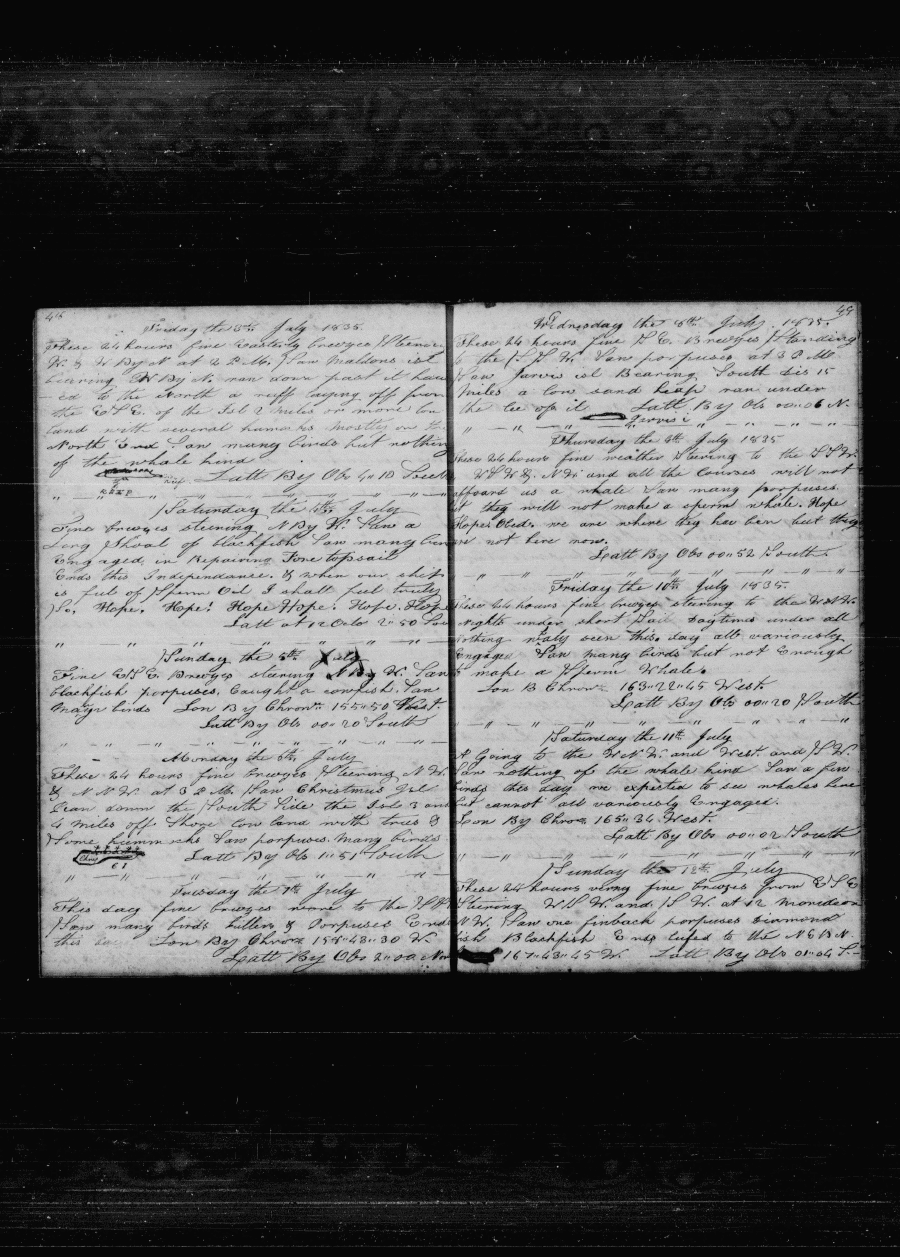 48
Friday the 3th July 1835
These 24 hours fine Easterly Breezes Steering
W. & W By N at 2 P.M. Saw Maldons isl
bearing W By N. ran down past it hau
ed to the North a reeff laying off from
the ESE. of the Isl 2 miles or more low
land with several humocks mostly on th
North End Saw many birds but nothing
of the whale kind
reef Latt By Obs 4"10 South
Saturday the 4th July
Fine breezes steering N By W. Saw a
Large Shoal of blackfish Saw many birds
Engaged in Repairing Fore topsail
Ends this Independanse. & when our ship
is ful of Sperm Oil I shall feel truly
So. Hope. Hope! Hope Hope. Hope. Hope
Latt at 12 Oclo 2"50 Sou
Sunday the 5th July
Fine ESE. Breezes steering N By W. Saw
blackfish porpuses. Caught a cowfish. Saw
many birds Lon By Chron 155"50 West.
Latt By Ob 00"20 South
Monday the 6th July
These 24 hours fine breezes Steering N.W.
& N N W. at 3 P.M. Saw Christmus Isl
Ran down the South Side the Isl 3 and
4 miles off Shore low land with trees &
Some hummocks Saw porpuses. many birds
Chris Latt By Ob 1"51 South
Tuesday the 7th July
This day fine breezes wore to the SW
Saw many birds killers & Porpuses Ends
this day Lon By Chron 158"48"30 W.
Latt By Obs 2"00 Nor
49
Wednesday the 8th July 1835.
These 24 hours fine S.E. Breezes Standing
to the SSW. Saw porpuses at 3 P.M.
Saw Jarvis isl Bearing South dis 15
Miles a low sand heap ran under
the lee of it Latt By Ob 00"06 N.
Jervis i
Thursday the 9th July 1835
These 24 hours fine weather Steering to the SSW.
WSW & NW and all the Courses will not
afford us a whale Saw many porpuses.
but they will not make a sperm whale. Hope
Hope Obed. we are where they have ben but they
are not here now.
Latt By Obs 00"52 South
Friday the 10th July 1835.
These 24 hours fine breezes steering to the WNW.
nights under short Sail daytimes under all
Nothing seen this day all variously
Engaged Saw many birds but not Enough
to make a Sperm Whale.
Lon B Chron 163"22"45 West.
Latt By Ob 00"20 South
Saturday the 11th July
A Going to the W N W. and West. and S W.
Saw nothing of the whale kind Saw a few
birds this day we expected to see whales here
but cannot all variously Engaged.
Lon By Chron 165"34 West.
Latt By Obs 00"02 South
Sunday the 12th July
These 24 hours verry fine breezes from ESE
Steering WSW. and S.W. at 12 Meridean
NW. Saw one finback porpuses
fish Blackfish Ends lufed to the N E B N
167"43"45 W. Latt By Obs 01"04 S.